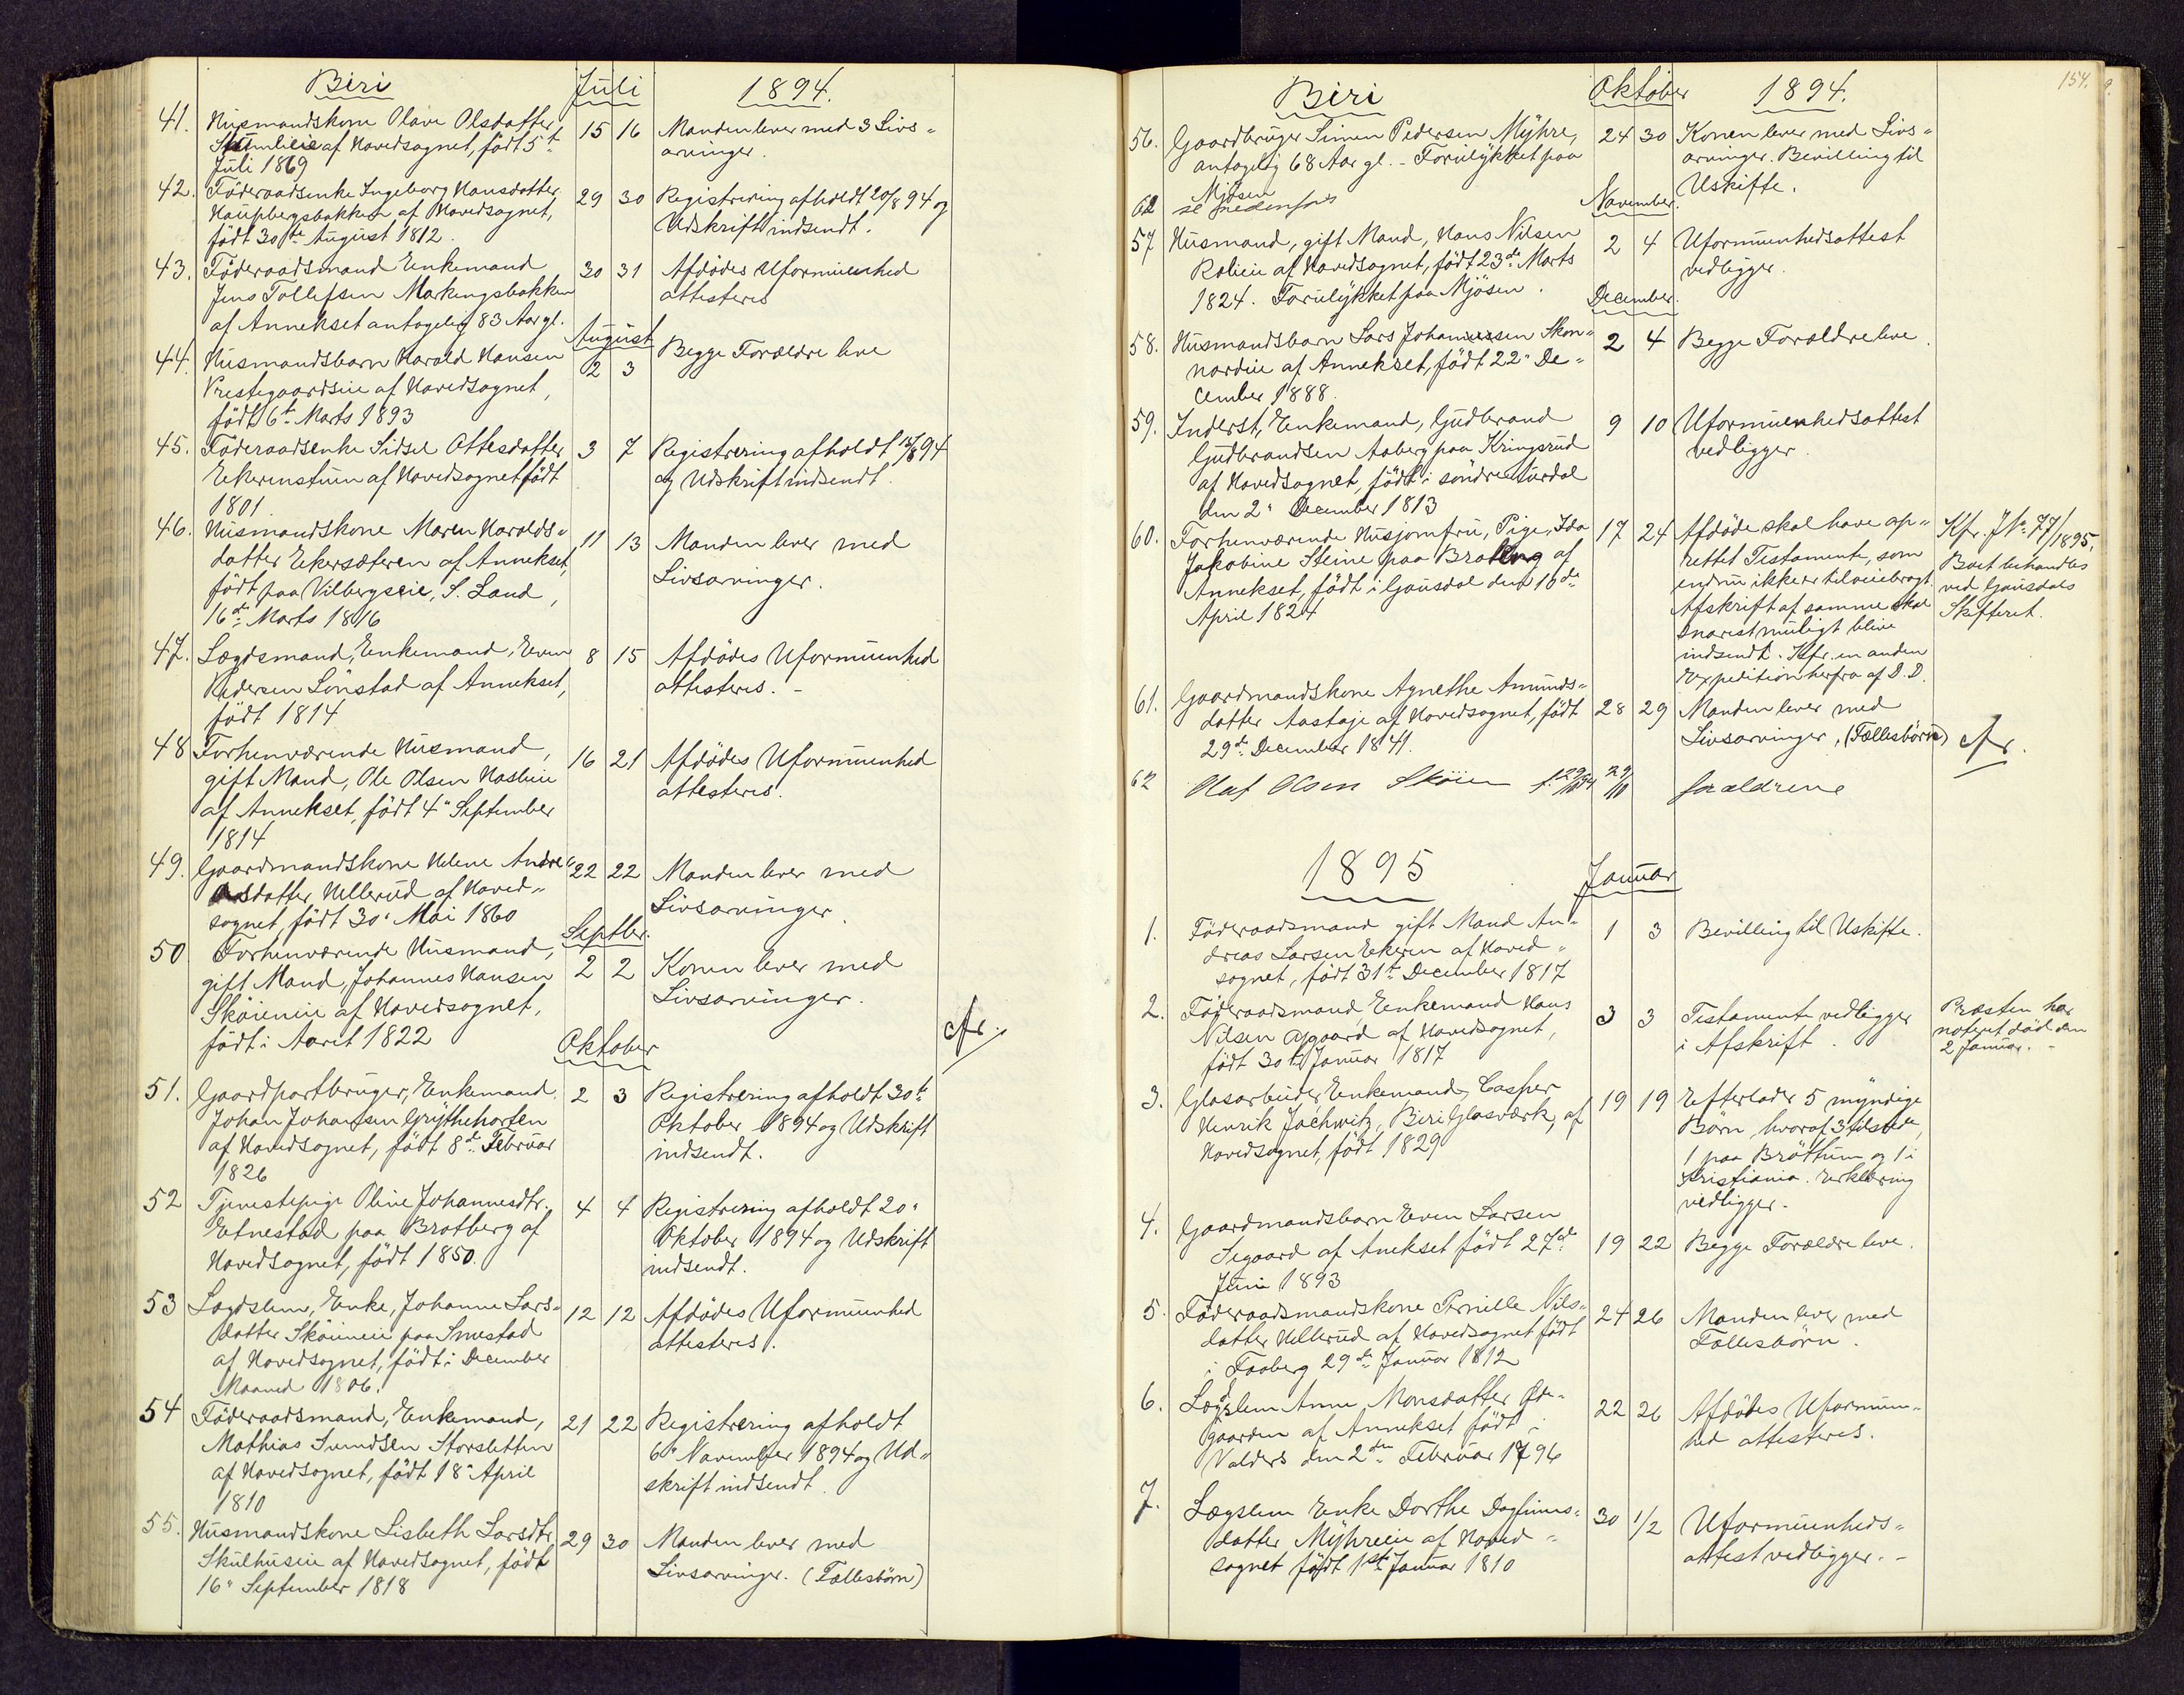 Biri Juli 1894.
41. Husmandskone Olave Olsdatter 15 16 Manden lever med 3 Livs-
af Hovedsognet, født 5te arvinger.
Juli 1869
42. Føderaadsenke Ingeborg Hansdatter 29 30 Registrering afholdt 20/8 94 og
af Hovedsognet, Udskrift indsendt.
født 30te August 1812.
43. Føderaadsmand Enkemand 30 31 Afdødes Uformuenhed
Jens Tollefsen Markengsbakken attesteres
af Annekset antagelig 83 Aar gl.
August
44. Husmandsbarn Harald Hansen 2 3 Begge Forældre leve
Prestegaardseie af Hovedsognet,
født 6te Marts 1893
45. Føderaadsenke Sidsel Ottesdatter 3 7 Registrering afholdt 94
Eekerenstuen af Hovedsognet født og Udskrift indsendt.
1801.
46. Husmandskone Maren Haralds- 11 13 Manden lever med
datter Eekersæteren af Annekset, Livsarvinger.
født paa Vilbergseie, S. Land,
16de Marts 1816
47. Lægdsmand, Enkemand, Even 8 15 Afdødes Uformuenhed
Pedersen Lønstad af Annekset, attesteres. -
født 1814
48 Forhenværende Husmand, 16 21 Afdødes Uformuenhed
gift Mand, Ole Olsen Hasleeie attesteres.
af Annekset, født 4" September
1814
49. Gaardmandskone Helene Andre- 22 22 Manden lever med
asdatter Hellerud af Hoved- Livsarvinger.
sognet, født 30" Mai 1860
Septbr.
50 Forhenværende Husmand, 2 2 Konen lever med
gift Mand, Johannes Hansen Livsarvinger.
Skøieneie af Hovedsognet,
født i Aaret 1822
Oktober
51. Gaardpartbruger, Enkemand, 2 3 Registrering afholdt 30te
Johan Johansen Grythehorten Oktober 1894 og Udskrift
af Hovedsognet, født 8de Februar indsendt.
1826
52 Tjenestepige Oline Johannesdtr. 4 4 Registrering afholdt 20"
Eetnestad paa Bratberg af Oktober 1894 og Udskrift
Hovedsognet, født 1850. indsendt.
53 Lægdslem, Enke, Johanne Lars- 12 12 Afdødes Uformuenhed
datter Skøieneie paa Smestad attesteres.
af Hovedsognet, født i December
Maaned 1806.
54 Føderaadsmand, Enkemand, 21 22 Registrering afholdt
Mathias Svendsen Storsletten 6" November 1894 og Ud-
af Hovedsognet, født 18" April skrift indsendt.
1810
55. Husmandskone Lisbeth Larsdtr. 29 30 Manden lever med
Skulhuseie af Hovedsognet, født Livsarvinger. (Fællesbørn)
16" September 1818
154.
Biri Oktober 1894.
56. Gaardbruger Simen Pedersen Myhre, 24 30 Konen lever med Livs-
antagelig 68 Aar gl. - Forulykket paa arvinger. Bevilling til
Mjøsen Uskifte.
62 se nedenfor November.
57. Husmand, gift Mand, Hans Nilsen 2 4 Uformuenhedsattest
af Hovedsognet, født 23de Marts vedligger.
1824. Forulykket paa Mjøsen.
December.
58. Husmandsbarn Lars Johannessen Skon- 2 4 Begge Forældre leve.
nordeie af Annekset, født 22" De-
cember 1888.
59. Inderst, Enkemand, Gudbrand 9 10 Uformuenhedsattest
Gudbrandsen Aaberg paa Kringsrud vedligger.
af Hovedsognet, født i søndre Aurdal
den 2" December 1813
60. Forhenværende Husjomfru, Pige, Ida 17 24 Afdøde skal have op- Kfr. JNo. 77/1895,
Jakobine Steine paa Bratberg af rettet Testamente, som Boet behandles
Annekset, født i Gausdal den 16de endnu ikke er tilveiebragt. ved Gausdals
April 1824 Afskrift af samme skal Skifteret.
snarest muligt blive
indsendt. Kfr. en anden
Expedition herfra af D.D.
61. Gaardmandskone Agnethe Amunds- 28 29 Manden lever med
datter Aastaje af Hovedsognet, født Livsarvinger, (Fællesbørn)
29de December 1841.
62 Olaf Olsen Skøien f. 29/10 94 29/10 forældrene
1895 Januar
1. Føderaadsmand gift Mand An- 1 3 Bevilling til Uskifte.
dreas Larsen Eekeren af Hoved-
sognet, født 31te December 1817
2. Føderaadsmand, Enkemand Hans 3 3 Testamente vedligger Præsten har
Nilsen af Hovedsognet, i Afskrift. noteret død den
født 30te Januar 1817 2 Januar. -
3. Glasarbeider, Enkemand, Casper 19 19 Efterlader 5 myndige
Henrik Jachwitz, Biri Glasværk, af Børn, hvoraf 3 tilstede,
Hovedsognet, født 1829 1 paa Brøttum og 1 i
Kristiania. Erklæring
vedligger.
4. Gaardmandsbarn Even Larsen
Segaard af Anekset født 27de 19 22 Begge Forældre leve.
Juni 1893
5. Føderaadsmandskone Pernille Nils- 24 26 Manden lever med
datter Hellerud af Hovedsognet født Fællesbørn.
i Faaberg 29de Januar 1812
6. Lægslem Anne Monsdatter Øde- 22 26 Afdødes Uformuen-
gaarden af Annekset født i hed attesteres.
Valders den 2den Februar 1796
7. Lægslem Enke Dorthe Dagfinns- 30 1/2 Uformuenheds-
datter Myhreeie af Hoved- attest vedligger. -
sognet født 1ste Januar 1810